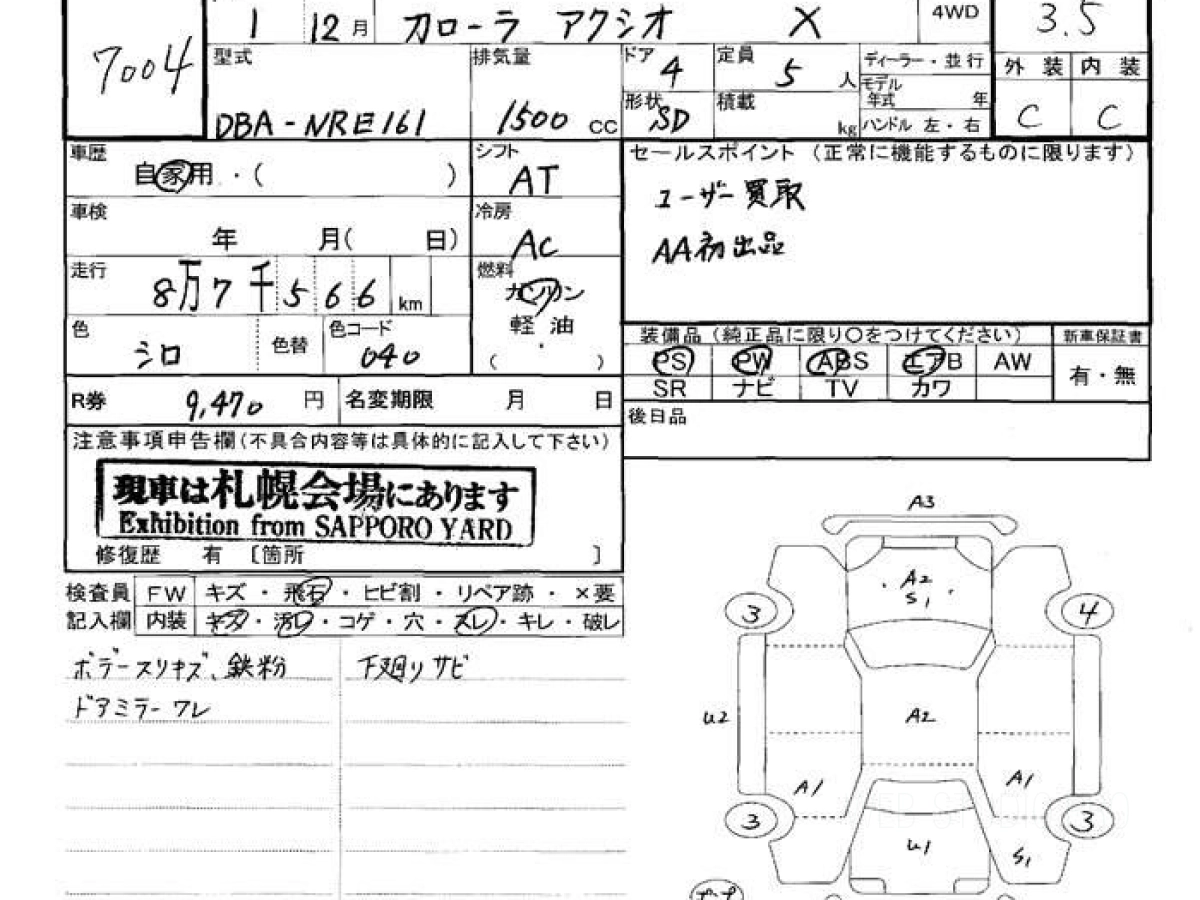 1 12月 カローラ アクシオ X 4WD 3.5
7004
型式 DBA-NRE161
排気量 1500 cc
ドア 4
定員 5 人
形状 SD
積載 kg
ディーラー・並行
モデル年式 年
ハンドル 左・右
外装 内装
C C
車歴 自家用・( )
シフト AT
車検 年 月( 日)
冷房 AC
走行 8万7千566 km
燃料 ガソリン
軽油
・
( )
色 シロ
色替
色コード 040
セールスポイント (正常に機能するものに限ります)
ユーザー買取
AA初出品
装備品(純正品に限り○をつけてください) 新車保証書
PS PW ABS エアB AW 有・無
SR ナビ TV カワ
後日品
R券 9,470 円 名変期限 月 日
注意事項申告欄(不具合内容等は具体的に記入して下さい)
現車は札幌会場にあります
Exhibition from SAPPORO YARD
修復歴 有 〔箇所 〕
検査員 FW キズ・飛石・ヒビ割・リペア跡・×要
記入欄 内装 キズ・汚レ・コゲ・穴・スレ・キレ・破レ
ボデースリキズ、鉄粉 下廻りサビ
ドアミラーワレ
A3
A2
S1
3 4
U2 A2
A1 A1
3 3
U1 S1